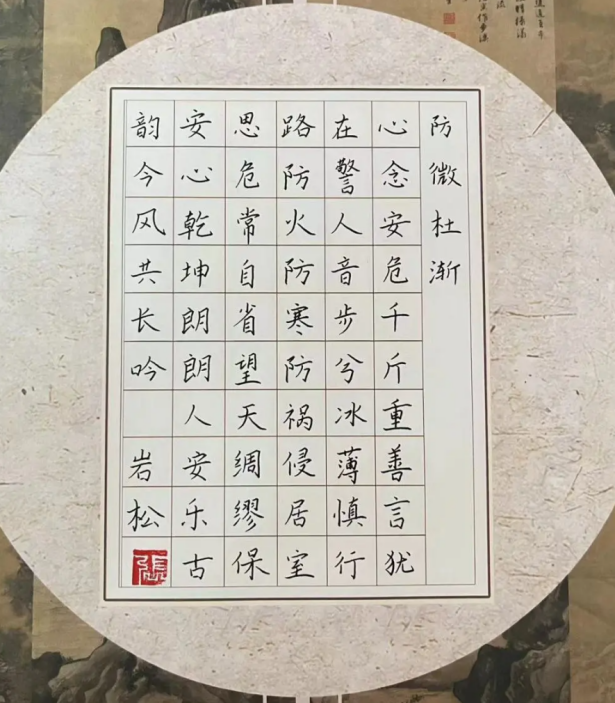 防微杜渐
心念安危千斤重善言犹
在警人音步兮冰薄慎行
路防火防寒防祸侵居室
思危常自省望天绸缪保
安心乾坤朗朗人安乐古
韵今风共长吟 岩松